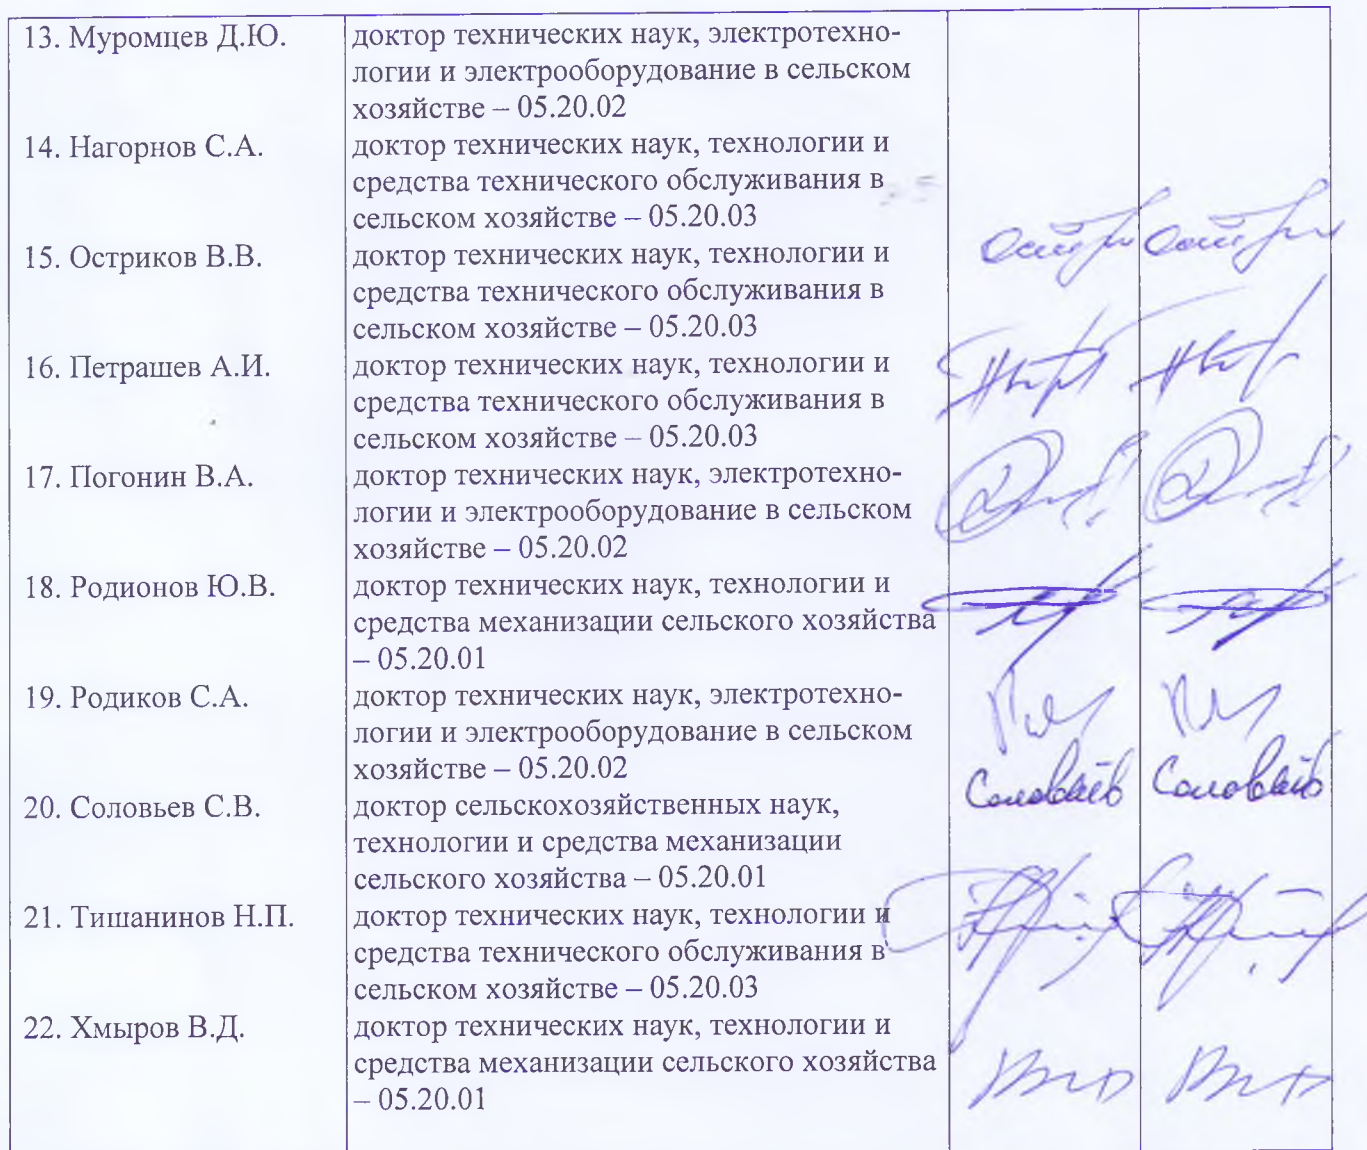 13. Муромцев Д.Ю.
доктор технических наук, электротехно-
логии и электрооборудование в сельском
хозяйстве – 05.20.02
14. Нагорнов С.А.
доктор технических наук, технологии и
средства технического обслуживания в
сельском хозяйстве – 05.20.03
15. Остриков В.В.
доктор технических наук, технологии и
средства технического обслуживания в
сельском хозяйстве – 05.20.03
16. Петрашев А.И.
доктор технических наук, технологии и
средства технического обслуживания в
сельском хозяйстве – 05.20.03
17. Погонин В.А.
доктор технических наук, электротехно-
логии и электрооборудование в сельском
хозяйстве – 05.20.02
18. Родионов Ю.В.
доктор технических наук, технологии и
средства механизации сельского хозяйства
– 05.20.01
19. Родиков С.А.
доктор технических наук, электротехно-
логии и электрооборудование в сельском
хозяйстве – 05.20.02
20. Соловьев С.В.
доктор сельскохозяйственных наук,
технологии и средства механизации
сельского хозяйства – 05.20.01
Соловьёв Соловьёв
21. Тишанинов Н.П.
доктор технических наук, технологии и
средства технического обслуживания в
сельском хозяйстве – 05.20.03
22. Хмыров В.Д.
доктор технических наук, технологии и
средства механизации сельского хозяйства
– 05.20.01